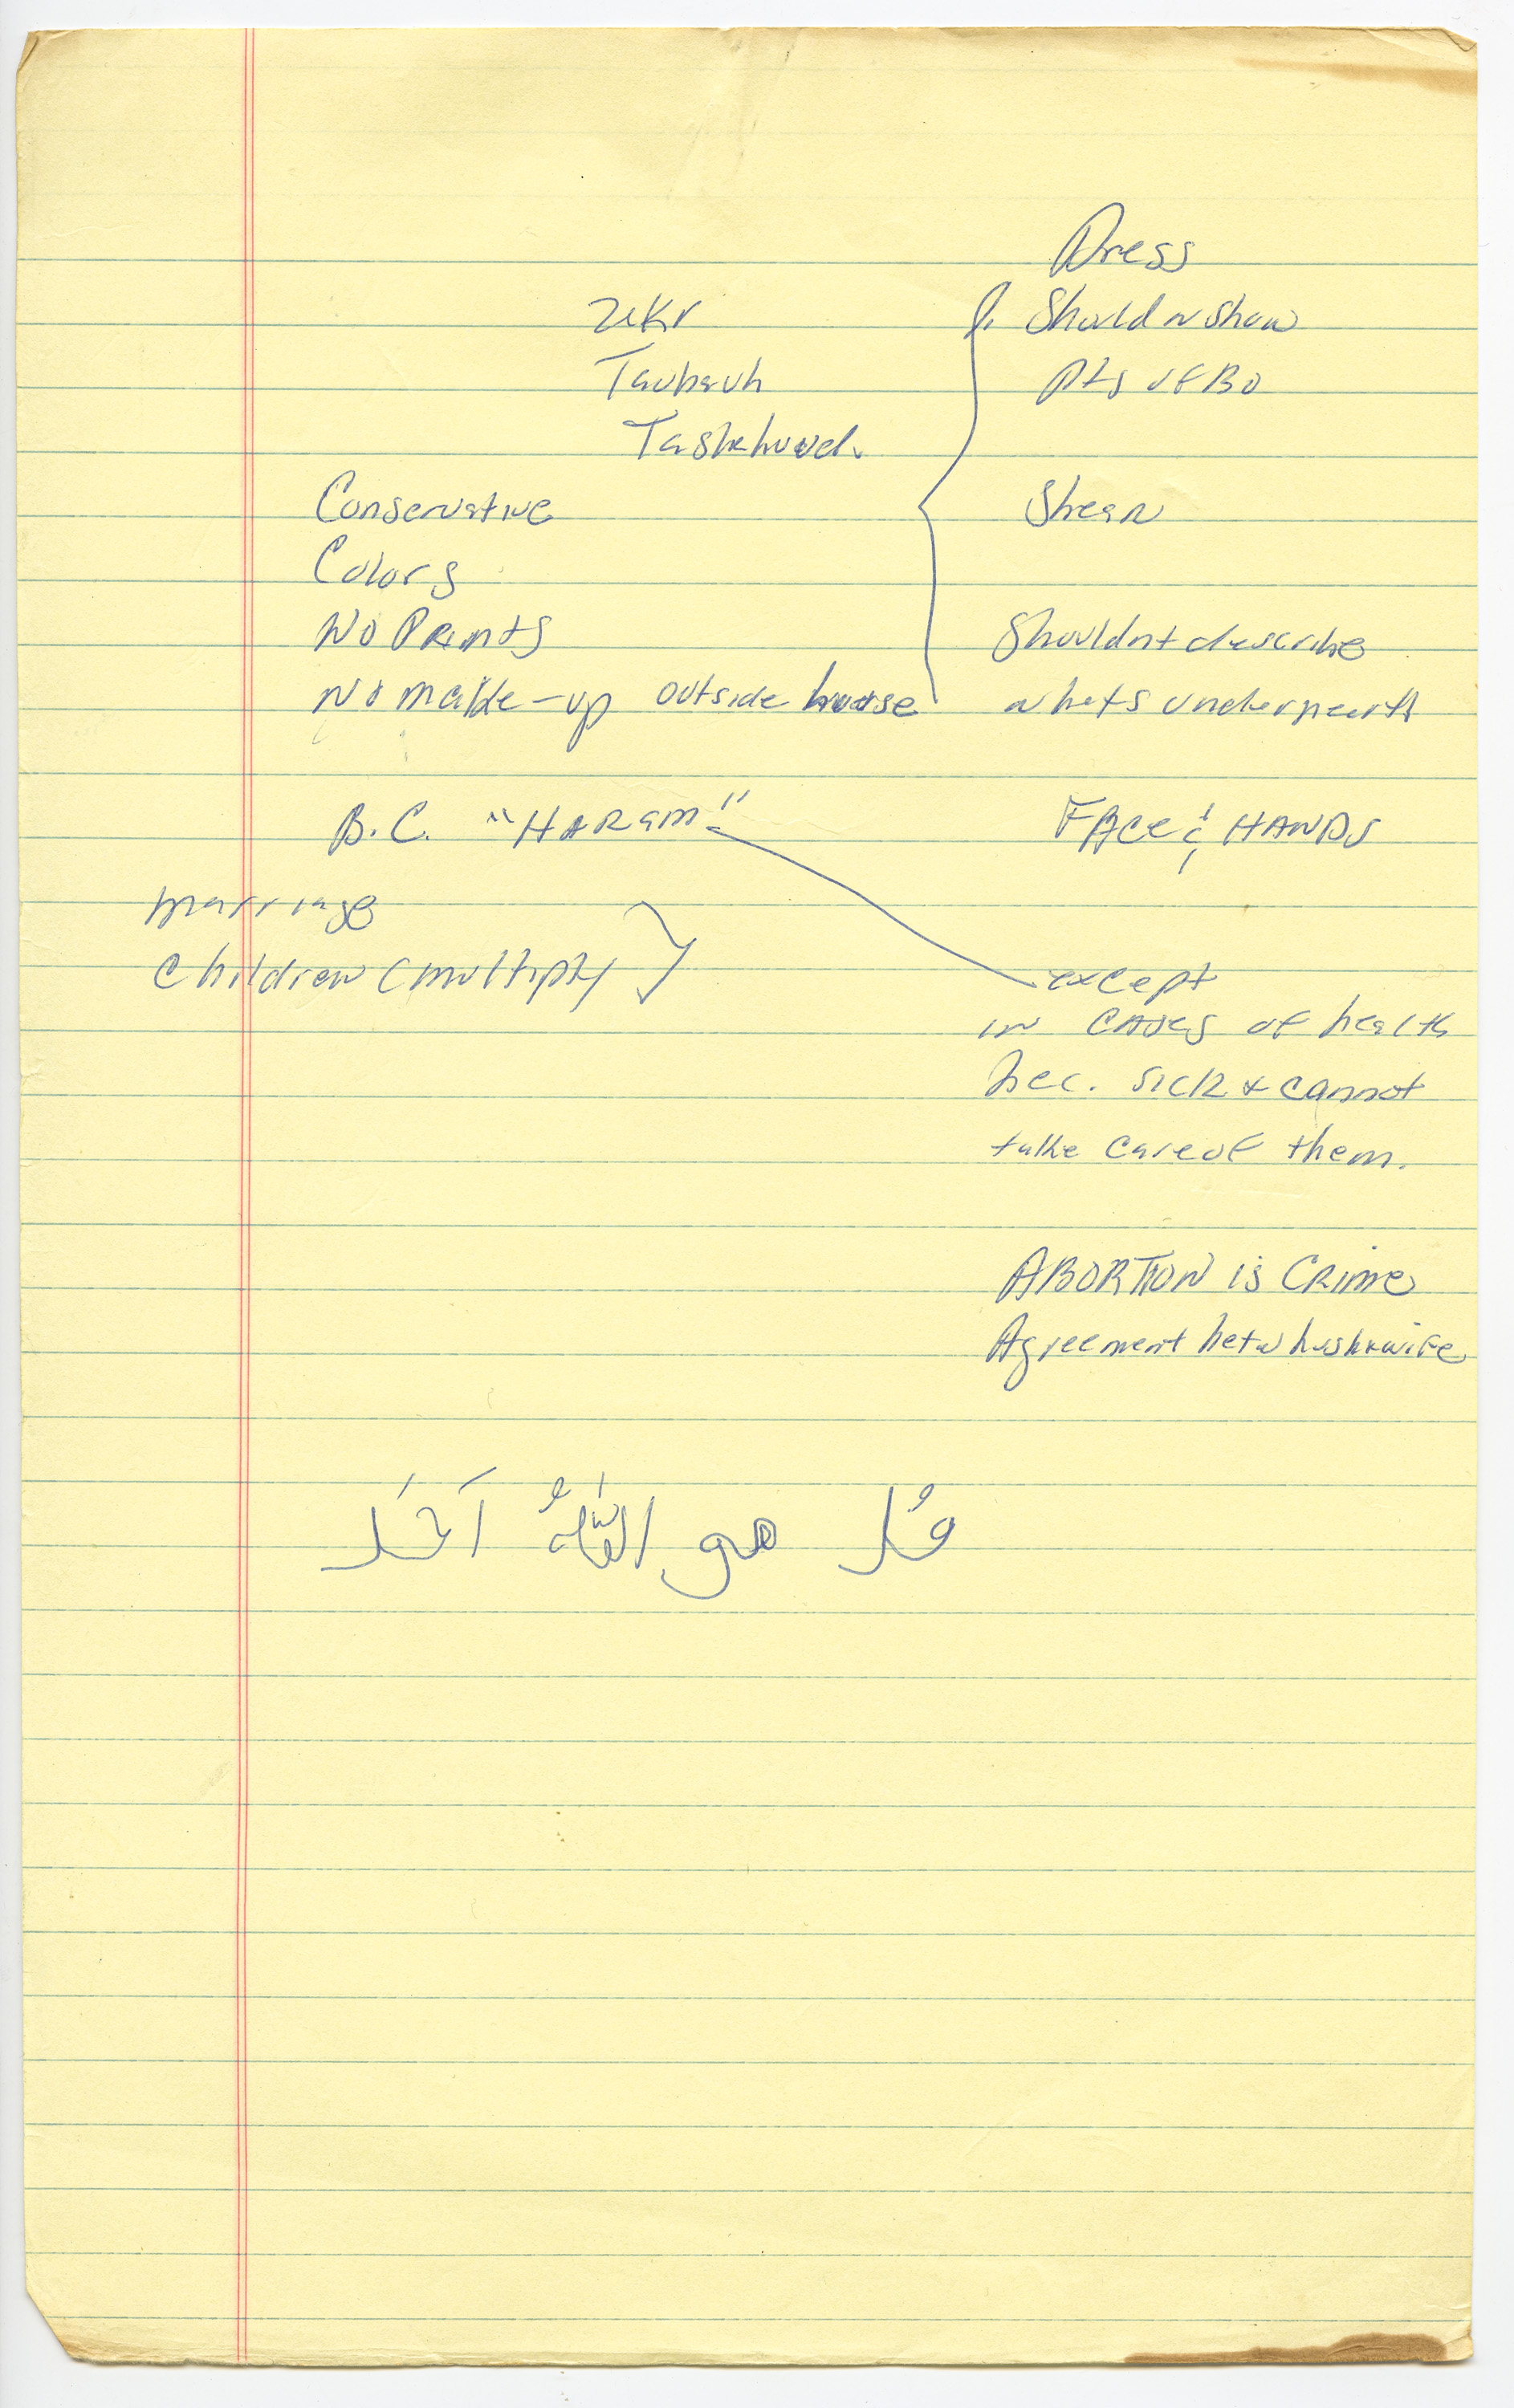 Dress
Zikr
Taubauh
Tashahuud.
1. Should n show
pts of BO
Conservative
Colors
No Prints
No make-up outside house
Shear
Shouldnt describe
whats underneath
B.C. "HARam"
FACE & HANDS
marriage
Children (multiply)
except
in CASes of health
bec. sick & cannot
take care of them.
ABORTION is CRime
Agreement betw husb & wife
قُل هو اللّٰهُ اَحَد